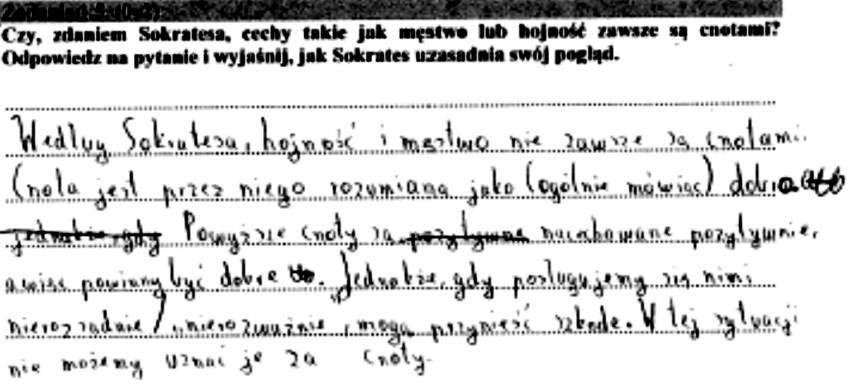 Czy, zdaniem Sokratesa, cechy takie jak męstwo lub hojność zawsze są cnotami?
Odpowiedz na pytanie i wyjaśnij, jak Sokrates uzasadnia swój pogląd.
Według Sokratesa, hojność i męstwo nie zawsze są cnotami.
Cnota jest przez niego rozumiana jako (ogólnie mówiąc) dobro
jednakże gdy Powyższe cnoty są pozytywne nacechowane pozytywnie,
a więc powinny być dobre. Jednakże, gdy posługujemy się nimi
nierozsądnie / "nierozważnie", mogą przynieść szkodę. W tej sytuacji
nie możemy uznać je za cnoty.